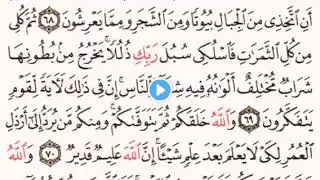 أَنِ ٱتَّخِذِى مِنَ ٱلْجِبَالِ بُيُوتًا وَمِنَ ٱلشَّجَرِ وَمِمَّا يَعْرِشُونَ ٦٨ ثُمَّ كُلِى
مِن كُلِّ ٱلثَّمَرَٰتِ فَٱسْلُكِى سُبُلَ رَبِّكِ ذُلُلًا ۚ يَخْرُجُ مِنۢ بُطُونِهَا
شَرَابٌ مُّخْتَلِفٌ أَلْوَٰنُهُۥ فِيهِ لِّلنَّاسِ ۗ إِنَّ فِى ذَٰلِكَ لَءَايَةً لِّقَوْمٍ
يَتَفَكَّرُونَ ٦٩ وَٱللَّهُ خَلَقَكُمْ ثُمَّ يَتَوَفَّىٰكُمْ ۚ وَمِنكُم مَّن يُرَدُّ إِلَىٰٓ أَرْذَلِ
ٱلْعُمُرِ لِكَىْ لَا يَعْلَمَ بَعْدَ عِلْمٍ شَيْـًٔا ۚ إِنَّ ٱللَّهَ عَلِيمٌ قَدِيرٌ ٧٠ وَٱللَّهُ